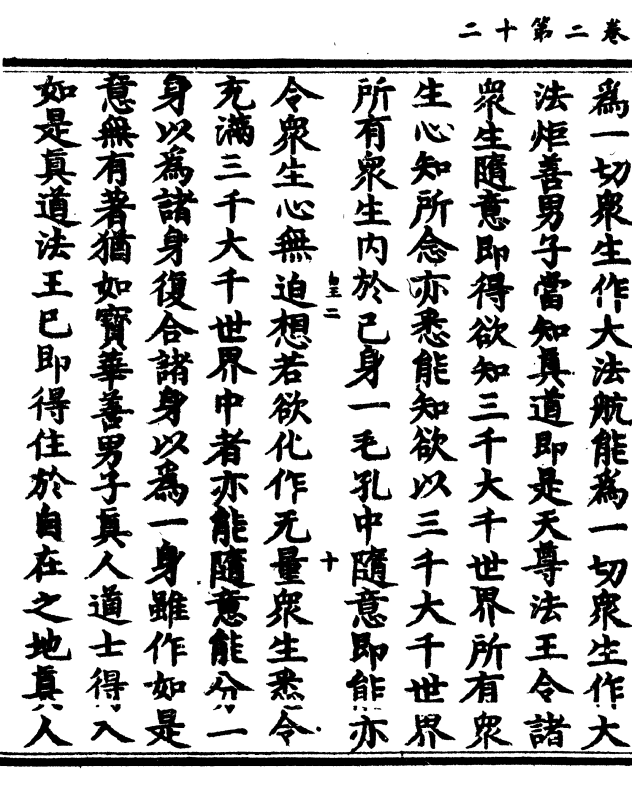 卷二第十二
爲一切衆生作大法航能爲一切衆生作大
法炬善男子當知真道即是天尊法王令諸
衆生隨意即得欲知三千大千世界所有衆
生心知所念亦悉能知欲以三千大千世界
所有衆生内於己身一毛孔中隨意即能亦
二 十
令衆生心無迫想若欲化作无量衆生悉令
充滿三千大千世界中者亦能隨意能分一
身以爲諸身復合諸身以爲一身雖作如是
意無有著猶如寳華善男子真人道士得入
如是真道法王已即得住於自在之地真人